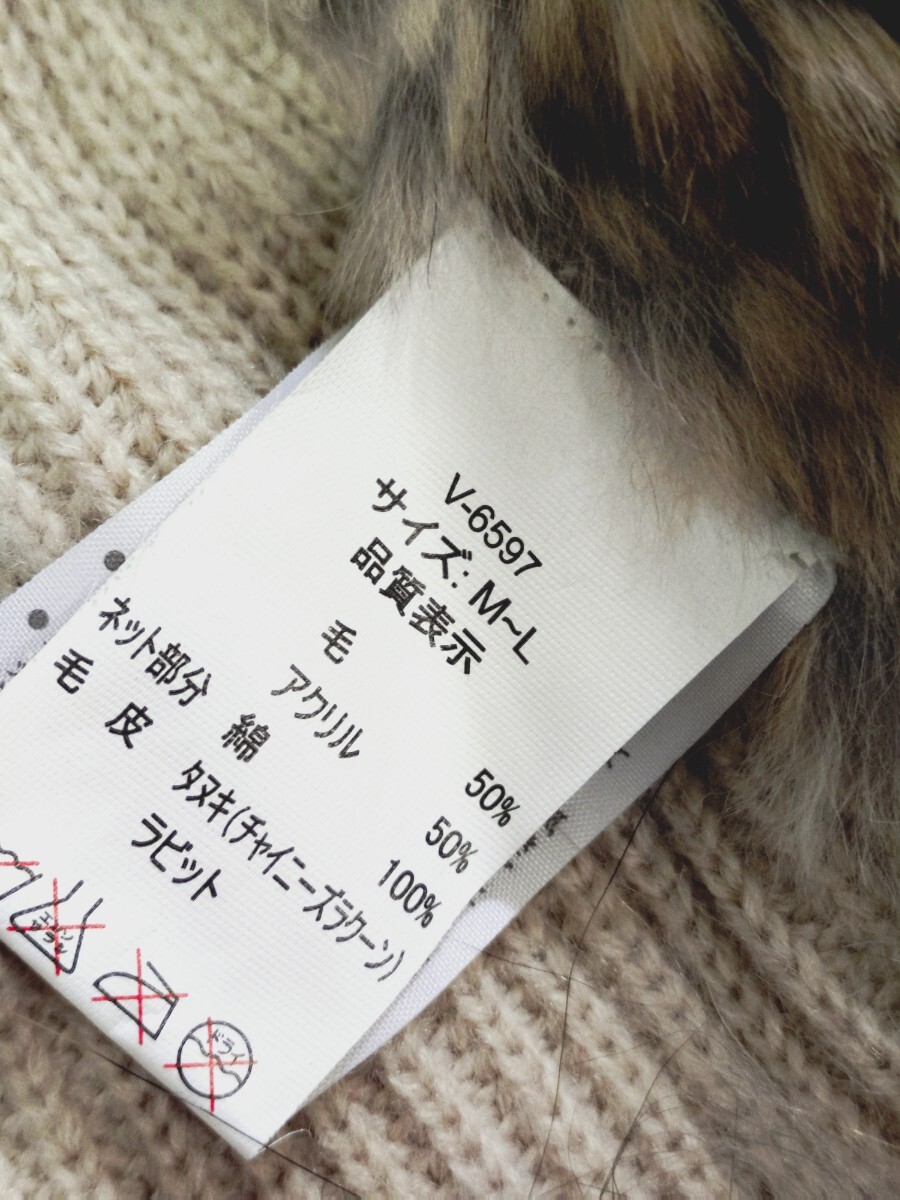 V-6597
サイズ: M~L
品質表示
毛 50%
アクリル 50%
ネット部分 綿 100%
毛 皮 タヌキ(チャイニーズラクーン)
ラビット
エンソ
サラシ
ドライ